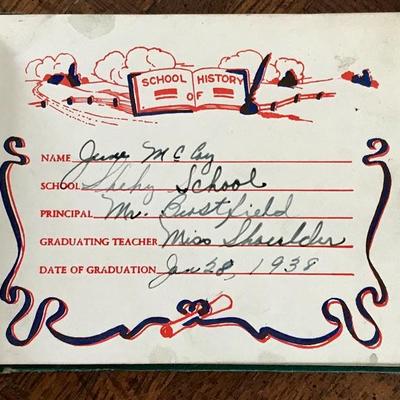 SCHOOL HISTORY
OF
NAME June McCoy
SCHOOL Shehy School
PRINCIPAL Mr. Brostfield
GRADUATING TEACHER Miss Shoulder
DATE OF GRADUATION Jan 28, 1938